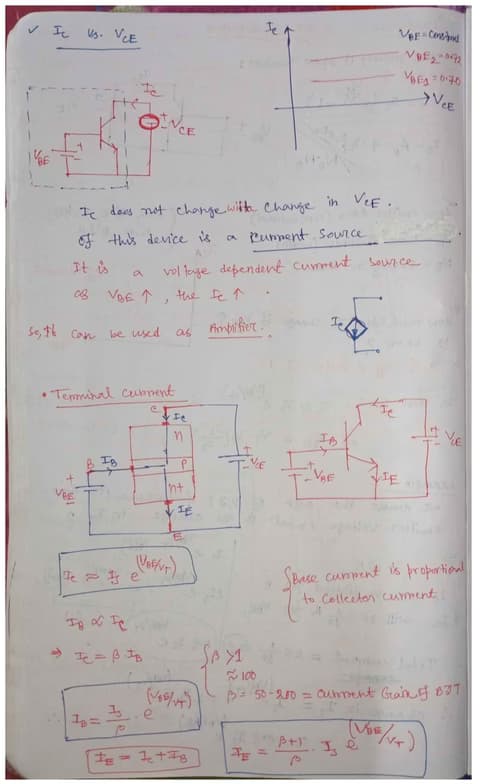 ✓ Ic Vs. VCE
Ic
VBE = Constant
VBE2 = 0.72
VBE1 = 0.70
VCE
Ic
+
-
VCE
VBE
+
Ic does not change with change in VCE.
of this device is a current source
It is a voltage dependent current source
as VBE ↑, the Ic ↑.
So, It can be used as Amplifier.
Ic
• Terminal Current
C
Ic
n
B IB
P
n+
IE
E
+
VBE
+
-
VCE
Ic
IB
IE
+
-
VBE
+
VCE
Ic ≈ Is e^(VBE/VT)
{Base current is proportional
to Collector current
IB ∝ Ic
⇒ Ic = β IB
{β >1
≈ 100
β = 50-200 = current Gain of BJT
IB = Is/β · e^(VBE/VT)
IE = Ic + IB
IE = β+1/β · Is e^(VBE/VT)